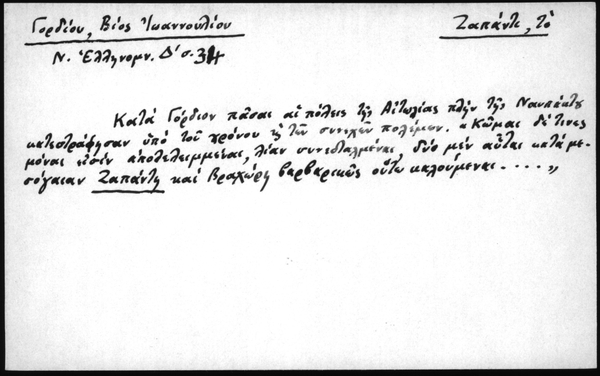 Γορδίου, Βίος Ἰωαννουλίου
Ζαπάντι, τὸ
Ν. Ἑλληνομν. Δ' σ. 34
Κατὰ Γόρδιον πᾶσαι αἱ πόλεις τῆς Αἰτωλίας πλὴν τῆς Ναυπάκτου
κατεστράφησαν ὑπὸ τοῦ χρόνου ἢ τῶν συνεχῶν πολέμων. «Κῶμαι δέ τινες
μόναι εἰσὶν ἀπολελειμμέναι, λίαν συνεσταλμέναι δύο μὲν αὗται κατὰ με-
σόγαιαν Ζαπάντη καὶ Βραχώρι βαρβαρικῶς οὕτω καλούμεναι.....»